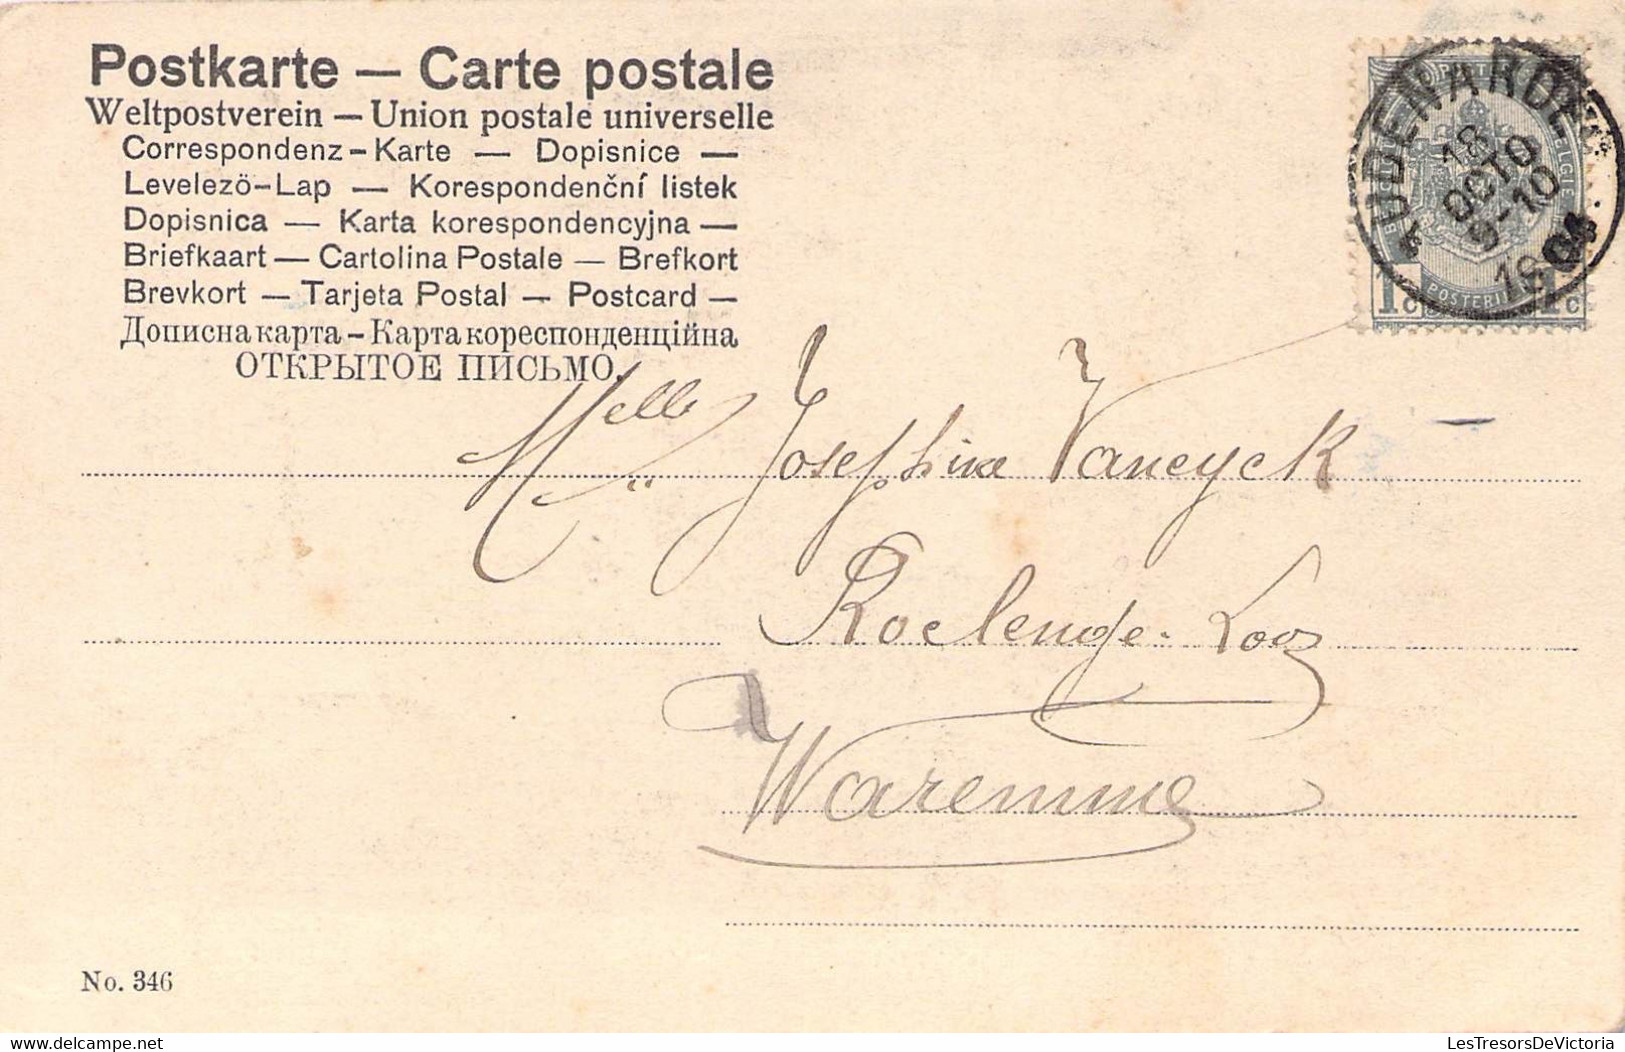 Postkarte — Carte postale
Weltpostverein — Union postale universelle
Correspondenz-Karte — Dopisnice —
Levelezö-Lap — Korespondenční listek
Dopisnica — Karta korespondencyjna —
Briefkaart — Cartolina Postale — Brefkort
Brevkort — Tarjeta Postal — Postcard —
Дописна карта - Карта кореспонденційна
ОТКРЫТОЕ ПИСЬМО.
AUDENARDE
18
OCTO
9-10
1904
1c POSTERIJEN 1c
Melle Josephine Vaneyck
Roclenge-Looz
Waremme
No. 346
LesTresorsDeVictoria
delcampe.net